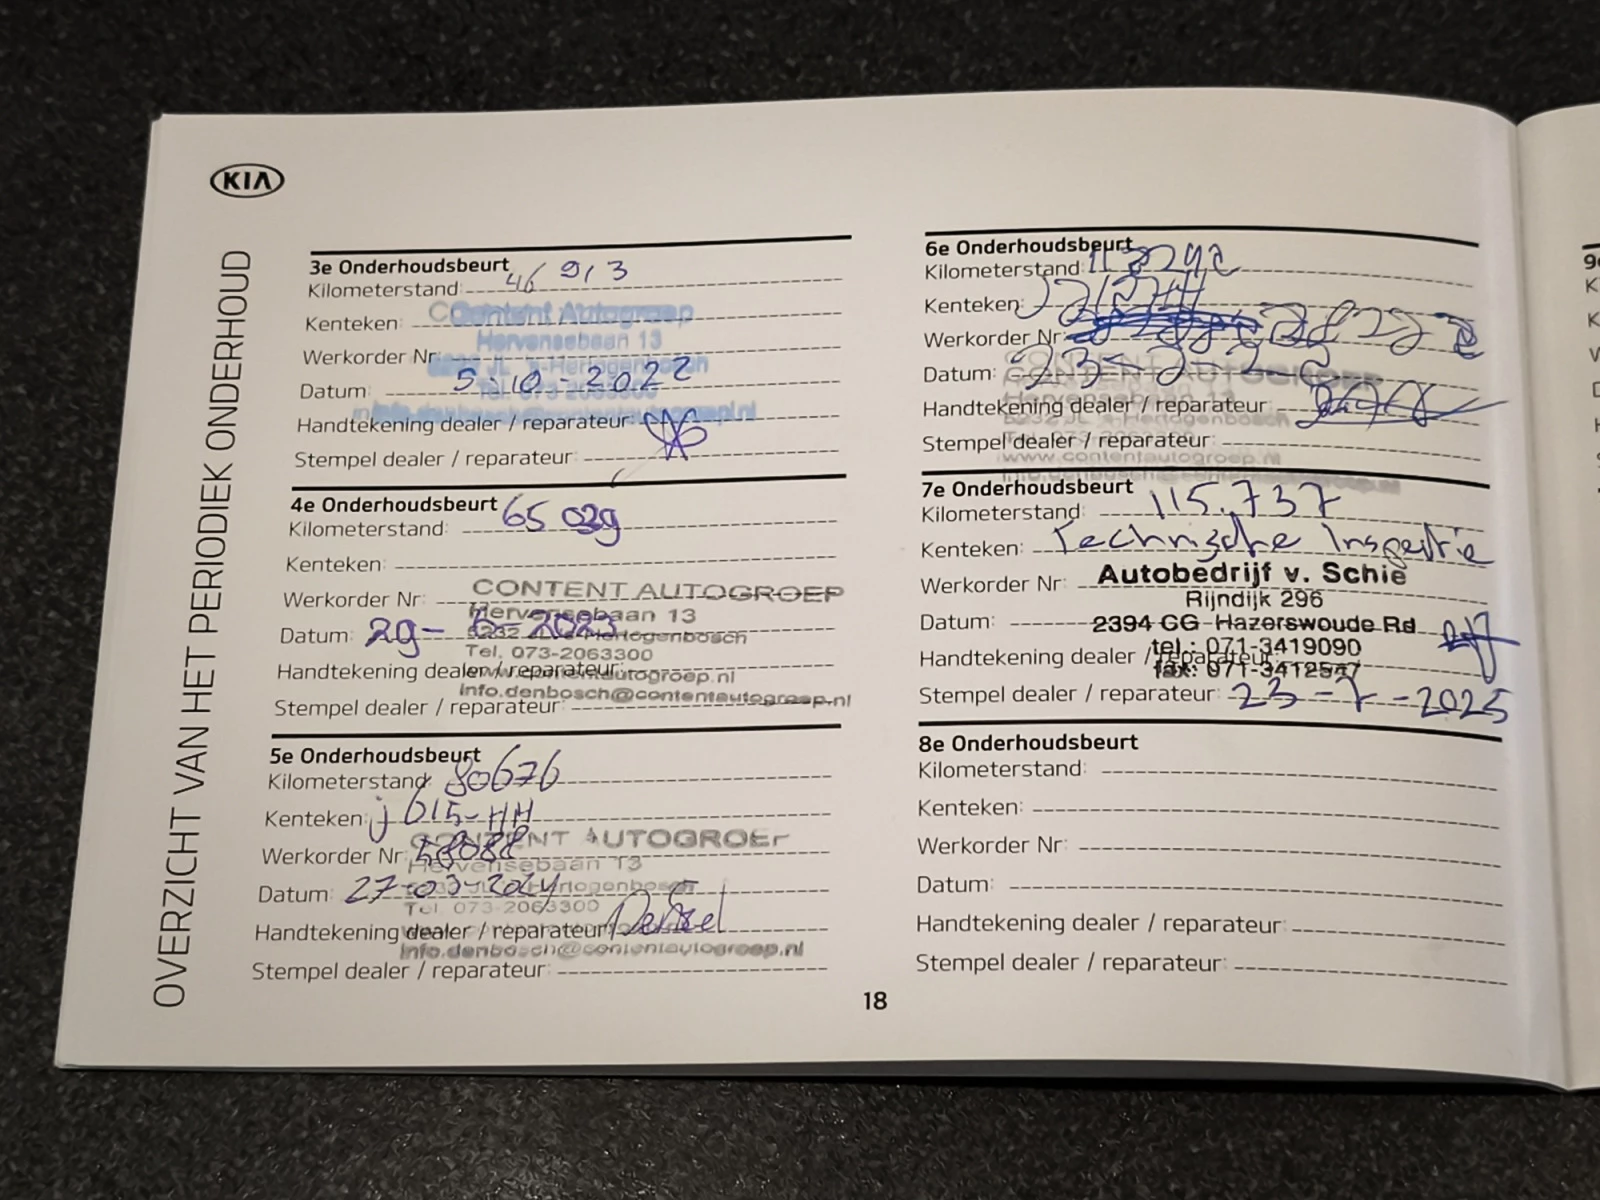 KIA
OVERZICHT VAN HET PERIODIEK ONDERHOUD
3e Onderhoudsbeurt
Kilometerstand: 46 913
Kenteken:
Content Autogroep
Werkorder Nr:
Hervensebaan 13
Datum: 5-10-2022
Tel. 073-2063300
Handtekening dealer / reparateur:
Stempel dealer / reparateur:
4e Onderhoudsbeurt
Kilometerstand: 65 029
Kenteken:
CONTENT AUTOGROEP
Werkorder Nr:
Hervensebaan 13
Datum: 29- -2023
5232 's-Hertogenbosch
Tel. 073-2063300
Handtekening dealer / reparateur:
www.contentautogroep.nl
info.denbosch@contentautogroep.nl
Stempel dealer / reparateur:
5e Onderhoudsbeurt
Kilometerstand: 80676
Kenteken: j 615-HH
CONTENT AUTOGROEP
Werkorder Nr: 58088
Hervensebaan 13
Datum: 27-03-2024
's-Hertogenbosch
Tel. 073-2063300
Handtekening dealer / reparateur:
info.denbosch@contentautogroep.nl
Stempel dealer / reparateur:
6e Onderhoudsbeurt
Kilometerstand:
Kenteken:
Werkorder Nr:
CONTENT AUTOGROEP
Datum:
Hervensebaan 13
Handtekening dealer / reparateur:
5232 JL 's-Hertogenbosch
Stempel dealer / reparateur:
www.contentautogroep.nl
info.denbosch@contentautogroep.nl
7e Onderhoudsbeurt
Kilometerstand: 115.737
Kenteken: Technische Inspectie
Autobedrijf v. Schie
Werkorder Nr:
Rijndijk 296
Datum:
2394 CG Hazerswoude Rd
tel.: 071-3419090
Handtekening dealer / reparateur:
fax: 071-3412547
Stempel dealer / reparateur: 23-7-2025
8e Onderhoudsbeurt
Kilometerstand:
Kenteken:
Werkorder Nr:
Datum:
Handtekening dealer / reparateur:
Stempel dealer / reparateur:
18